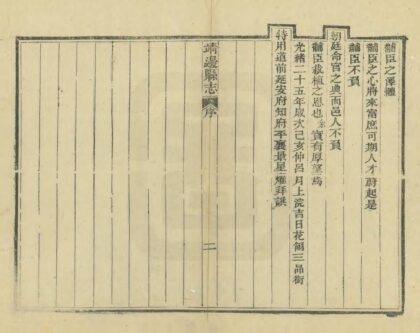 黼臣之深謹
黼臣之心將來富庶可期人才蔚起是
黼臣不負
朝廷命官之典而邑人不負
黼臣教植之恩也予實有厚望焉
光緒二十五年歲次己亥仲呂月上浣吉日花翎三品銜
特用道前延安府知府平襄景星耀拜譔
靖邊縣志 序 二